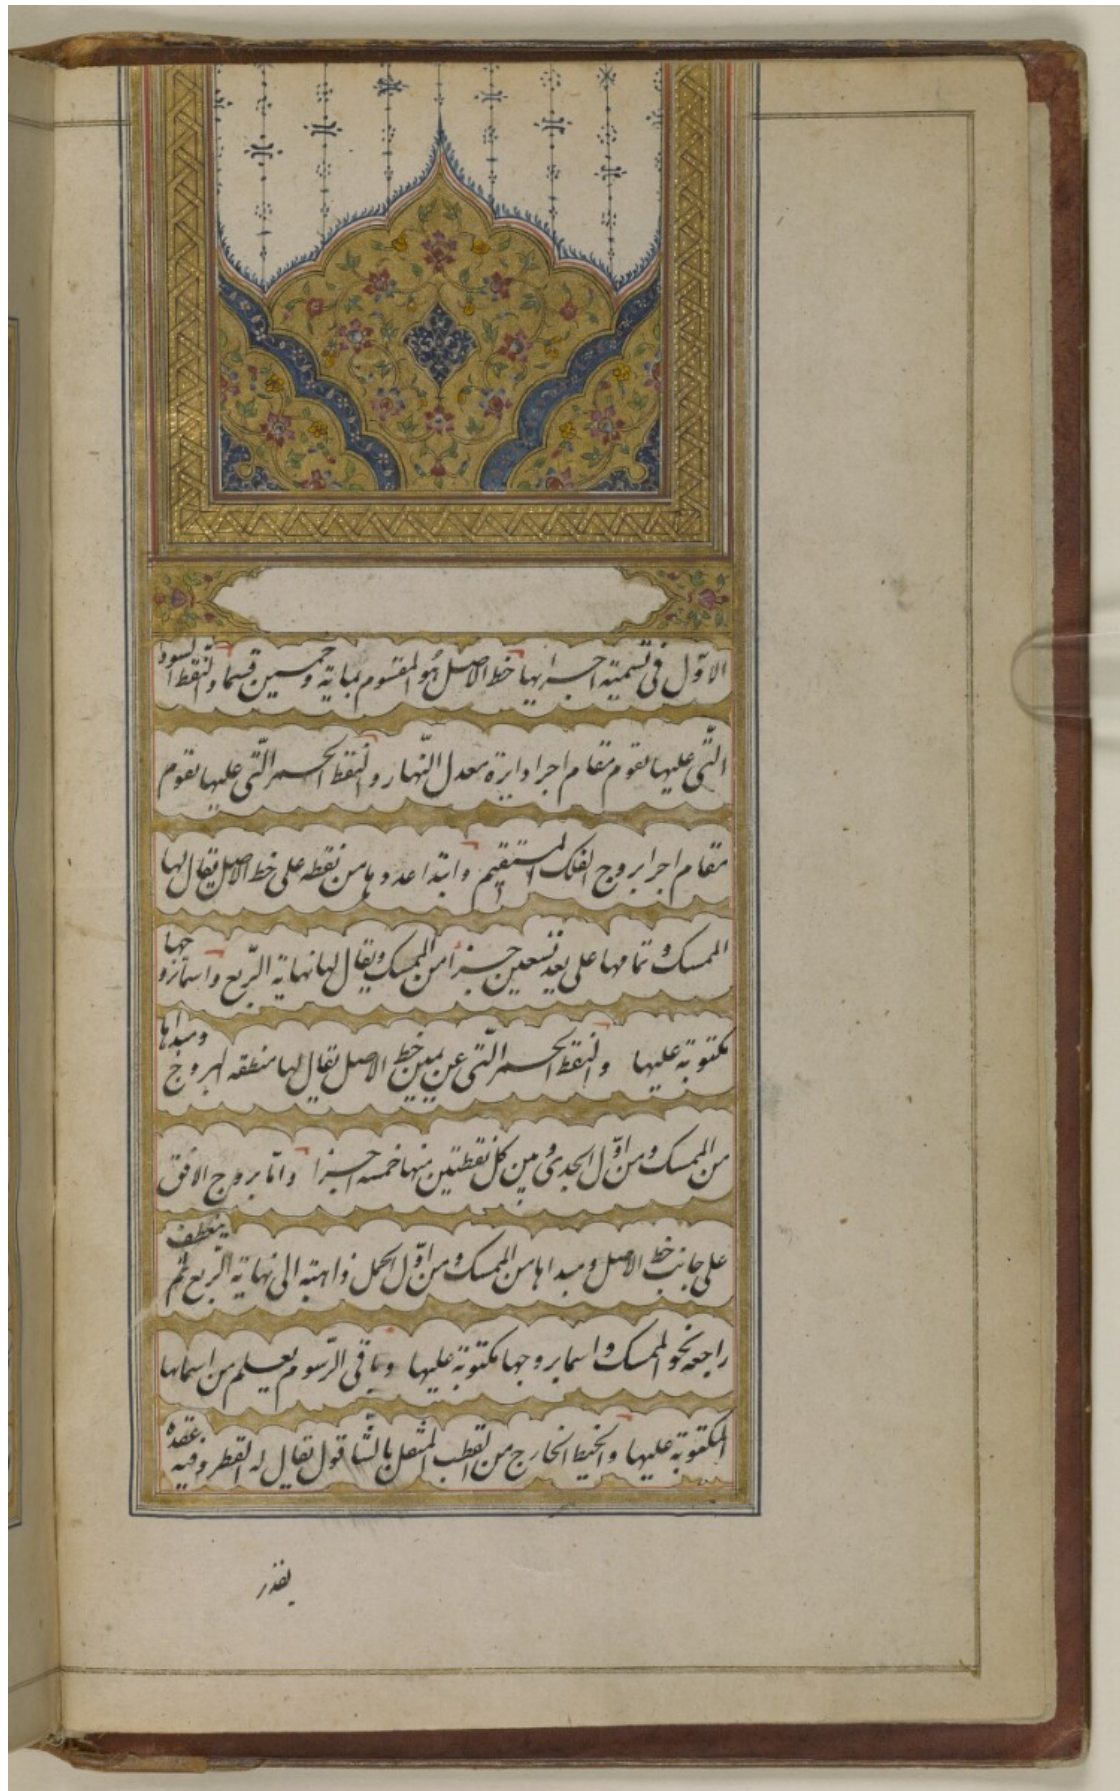 الاوّل فى تسمية اجزايها خط الاصل هو المقسوم بماية وخمسين قسما والنقط السود
الّتى عليها تقوم مقام اجزا دايرة معدل النّهار والنقط الحمر الّتى عليها تقوم
مقام اجزا بروج الفلك المستقيم وابتدا عددها من نقطه على خط الاصل يقال لها
الممسك وتمامها على بعد تسعين جزأ من الممسك ويقال لها نهاية الرّبع واسما بروجها
مكتوبة عليها والنقط الحمر الّتى عن يمين خط الاصل يقال لها منطقه البروج ومبداها
من الممسك ومن اوّل الجدى وبين كل نقطتين منها خمسه اجزا وامّا بروج الافق
على جانب خط الاصل ومبداها من الممسك ومن اوّل الحمل ذاهبة الى نهاية الرّبع ثم ينعطف
راجعه نحو الممسك واسما بروجها مكتوبة عليها وباقى الرّسوم يعلم من اسمائها
المكتوبة عليها والخيط الخارج من القطب المثقل بالشّاقول يقال له القطر وفيه عقده